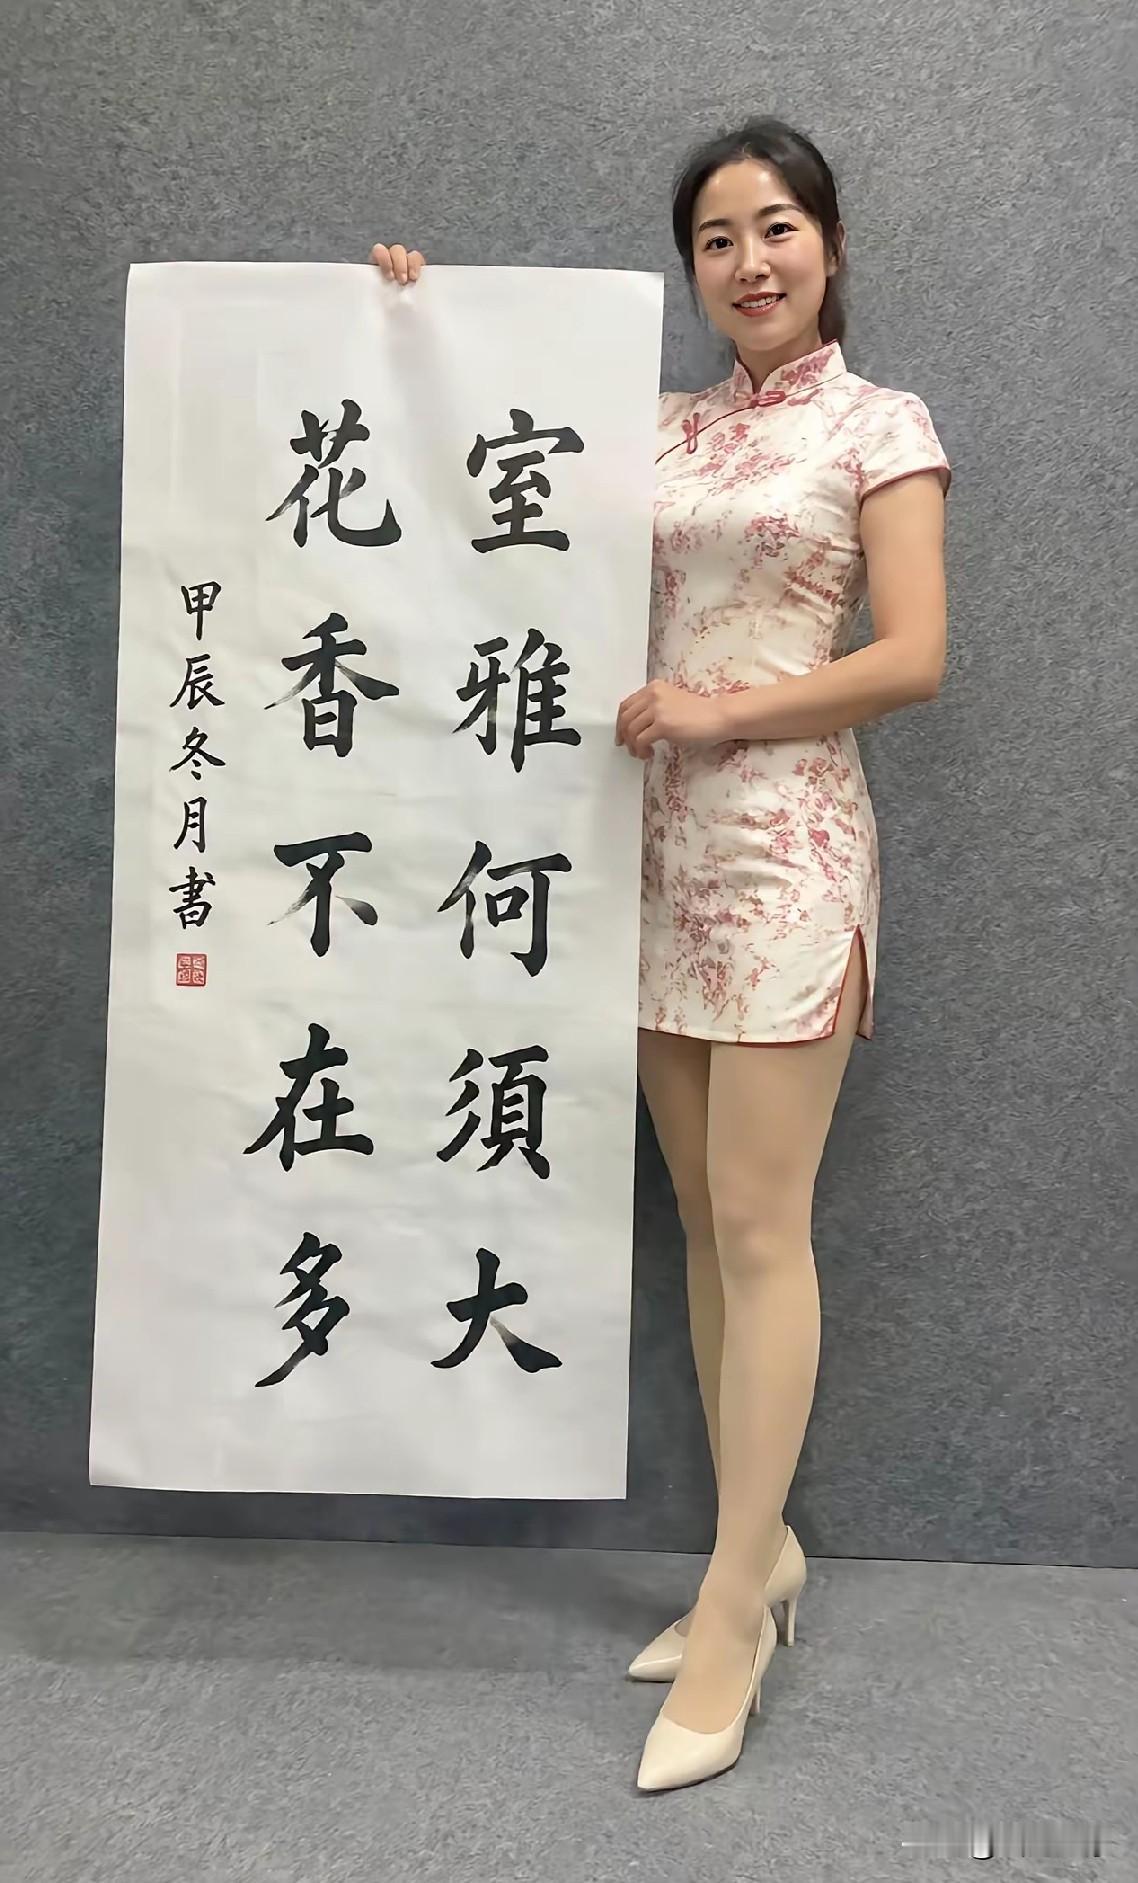 室雅何須大
花香不在多
甲辰冬月書